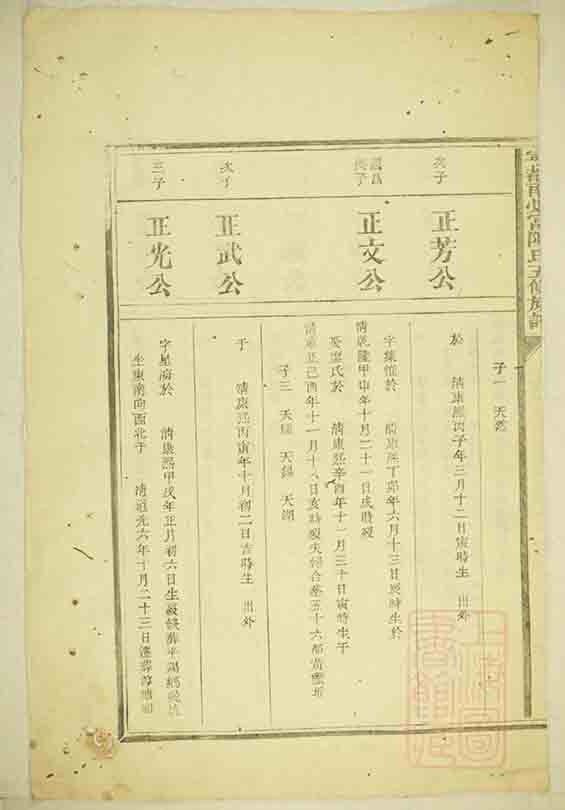 陳氏五修族譜
子一 天
次子
正芳公
於 清康熙丙子年三月十二日寅時生 出外
長子
正文公
字集 於 清康熙丁卯年六月十三日辰時生於
清乾隆甲申年十月二十一日戌時歿
娶 氏於 清康熙辛酉年十一月三十日寅時生于
清雍正己酉年十一月十八日亥時歿夫婦合墓五十六都黃
子三 天 天錫 天
次子
正武公
于 清康熙丙寅年十月初二日吉時生 出外
三子
正光公
字星 於 清康熙甲戌年正月初六日生歿後葬平
坐東南向西北于 清道光六年十月二十三日遷葬
上海圖書館藏